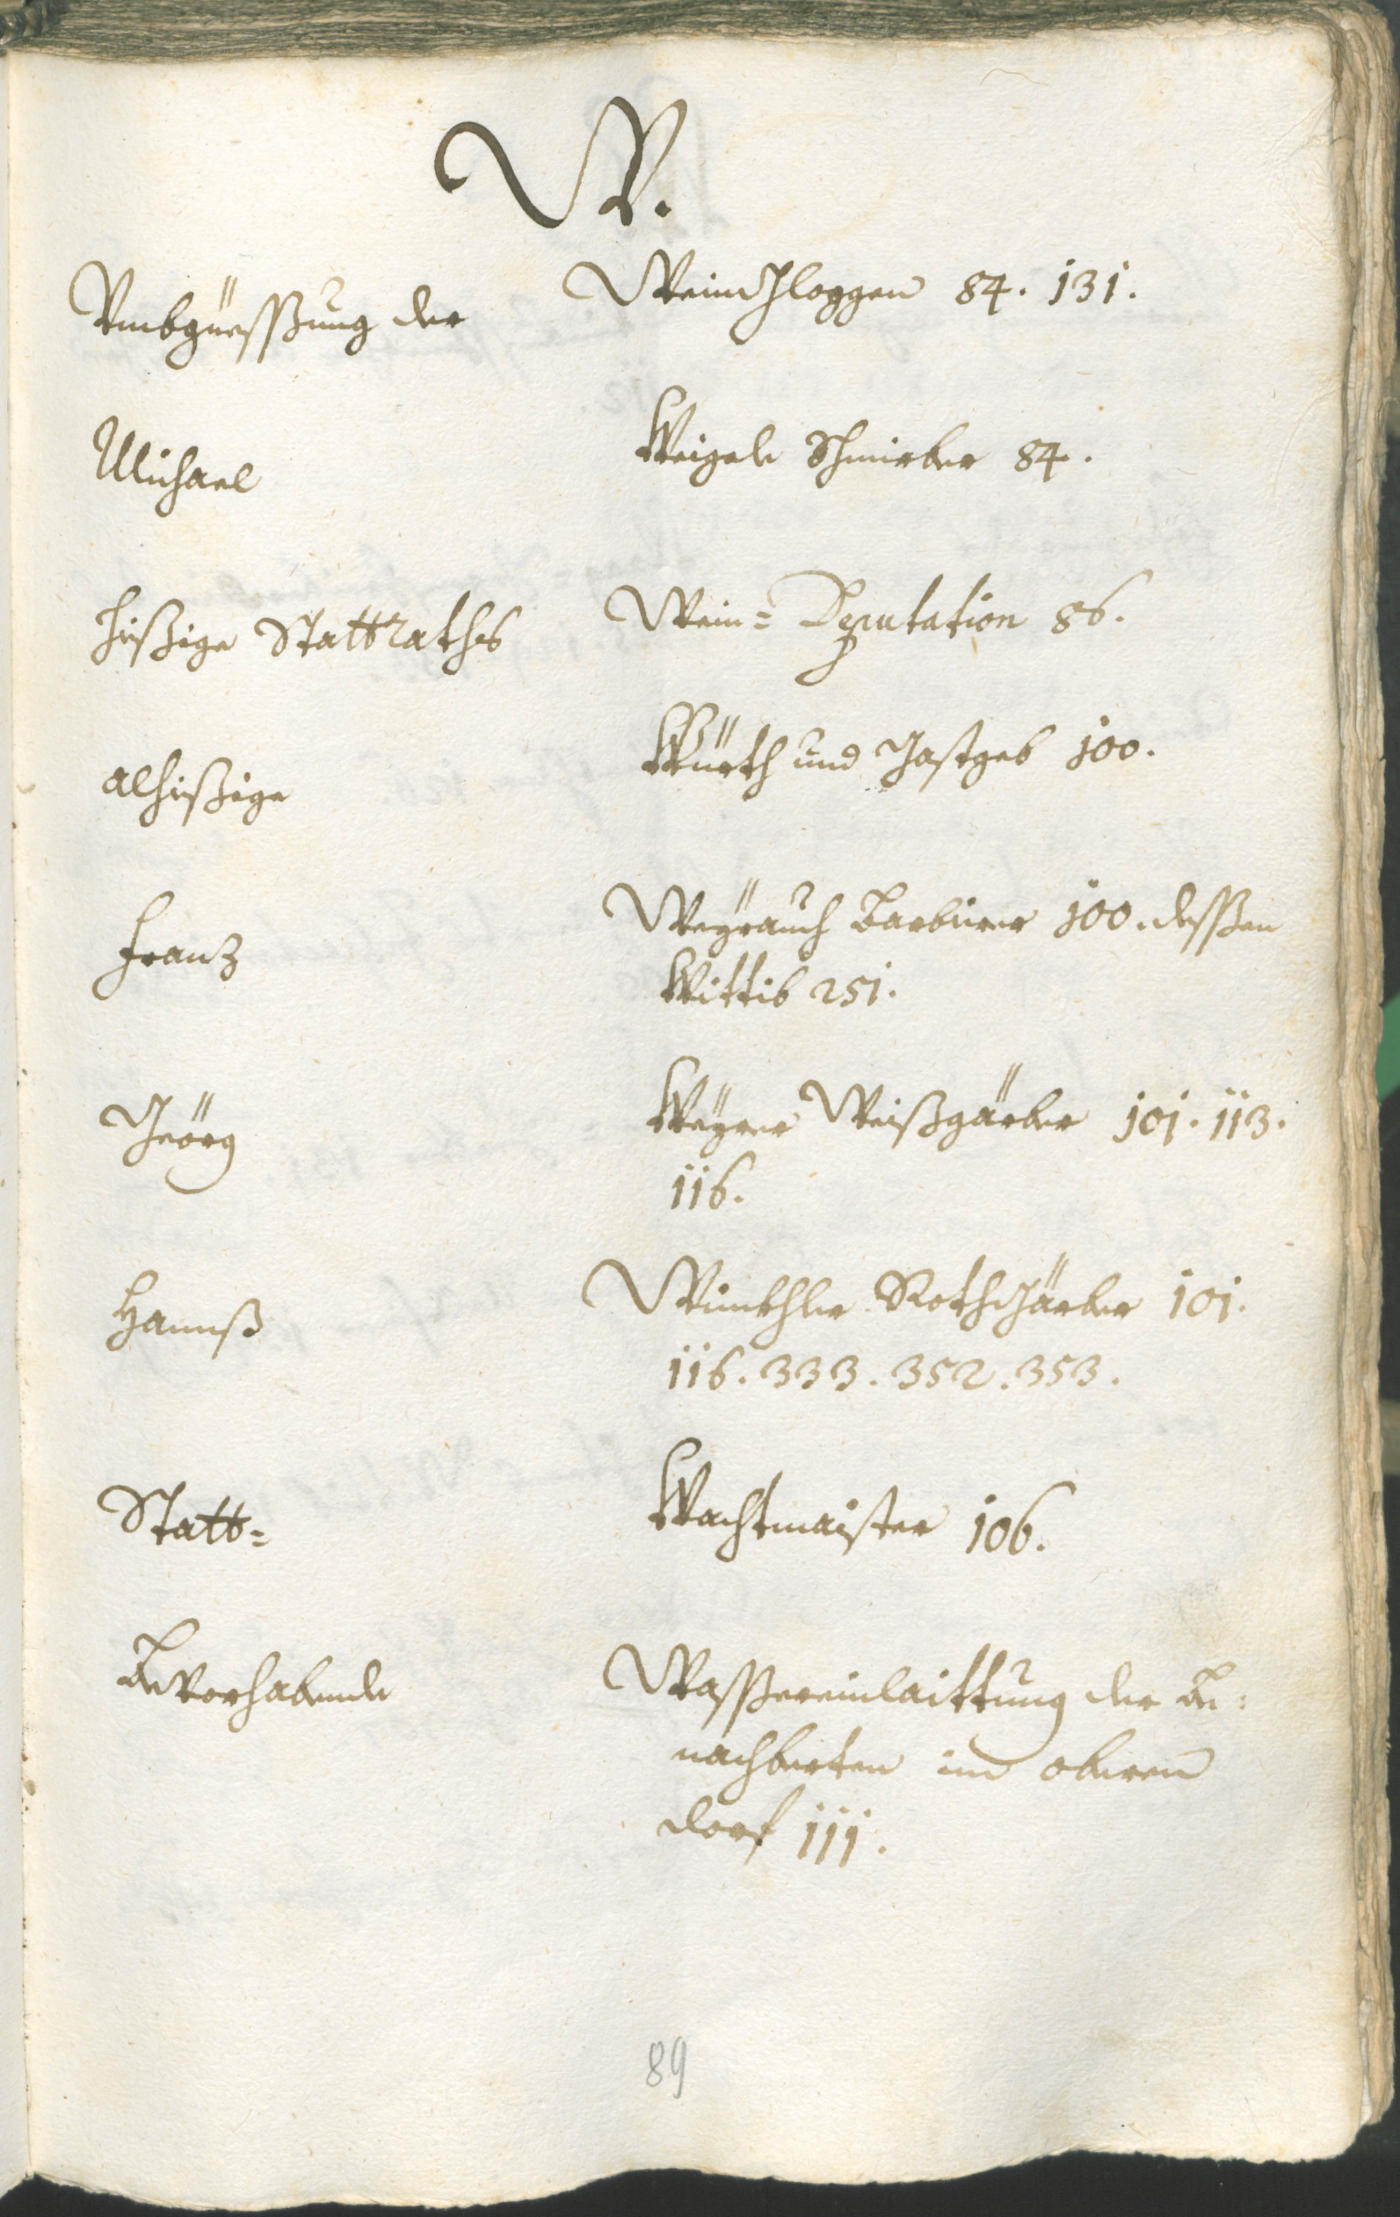 W.
Umbgüessung der WeinGloggen 84. 131.
Michael Weigele Schmirber 84.
hießige Stattrathes Wein= Deputation 86.
alhießige Würth und Gastgeb 100.
Franz Weÿrauch Barbierer 100. dessen
Wittib 251.
Geörg Weÿrer Weißgärber 101. 113.
116.
Hannß Winkhler RothGärber 101.
116. 333. 352. 353.
Statt= Wachtmaister 106.
Bevorhabende Wassereinlaittung der Be:
nachberten im oberen
dorf 111.
89